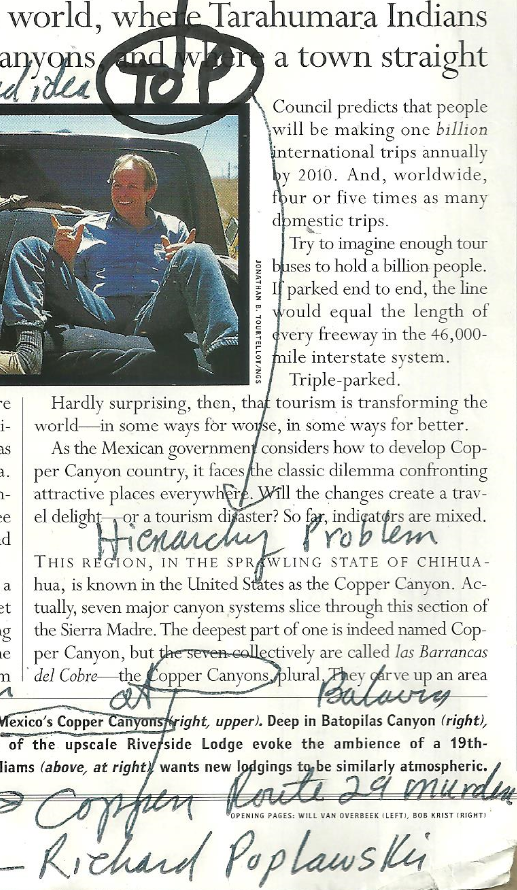 world, where Tarahumara Indians
anyons, and where a town straight
idea
TOP
Council predicts that people
will be making one billion
international trips annually
by 2010. And, worldwide,
four or five times as many
domestic trips.
Try to imagine enough tour
buses to hold a billion people.
If parked end to end, the line
would equal the length of
every freeway in the 46,000-
mile interstate system.
Triple-parked.
JONATHAN B. TOURTELLOT/NGS
Hardly surprising, then, that tourism is transforming the
world—in some ways for worse, in some ways for better.
As the Mexican government considers how to develop Cop-
per Canyon country, it faces the classic dilemma confronting
attractive places everywhere. Will the changes create a trav-
el delight—or a tourism disaster? So far, indicators are mixed.
Hierarchy Problem
THIS REGION, IN THE SPRAWLING STATE OF CHIHUA-
hua, is known in the United States as the Copper Canyon. Ac-
tually, seven major canyon systems slice through this section of
the Sierra Madre. The deepest part of one is indeed named Cop-
per Canyon, but the seven collectively are called las Barrancas
del Cobre—the Copper Canyons, plural. They carve up an area
at
Mexico's Copper Canyons (right, upper). Deep in Batopilas Canyon (right),
of the upscale Riverside Lodge evoke the ambience of a 19th-
liams (above, at right), wants new lodgings to be similarly atmospheric.
Copper Route 29 murder
OPENING PAGES: WILL VAN OVERBEEK (LEFT), BOB KRIST (RIGHT)
Richard Poplawski